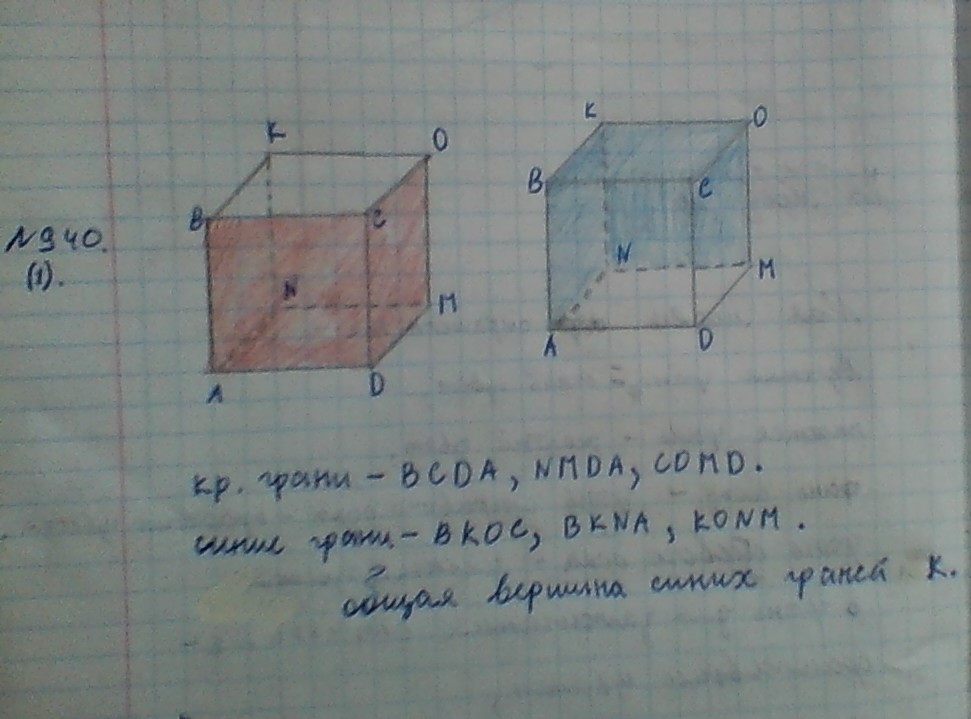 N940.
(1).
K
O
B
C
N
M
A
D
K
O
B
C
N
M
A
D
кр. грани - BCDA, NMDA, COMD.
синие грани - BKOC, BKNA, KONM.
общая вершина синих граней K.